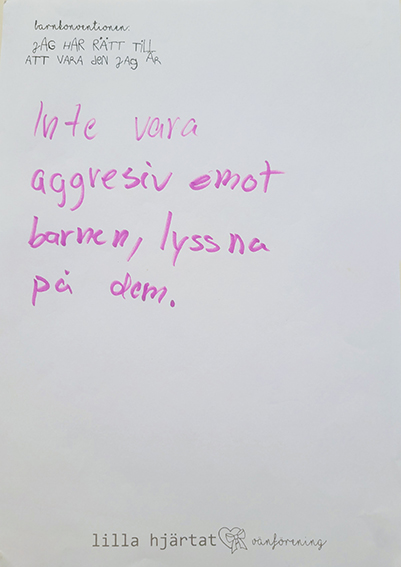 barnkonventionen:
JAG HAR RÄTT TILL
ATT VARA DEN JAG ÄR
Inte vara
aggresiv emot
barnen, lyssna
på dem.
lilla hjärtat vänförening